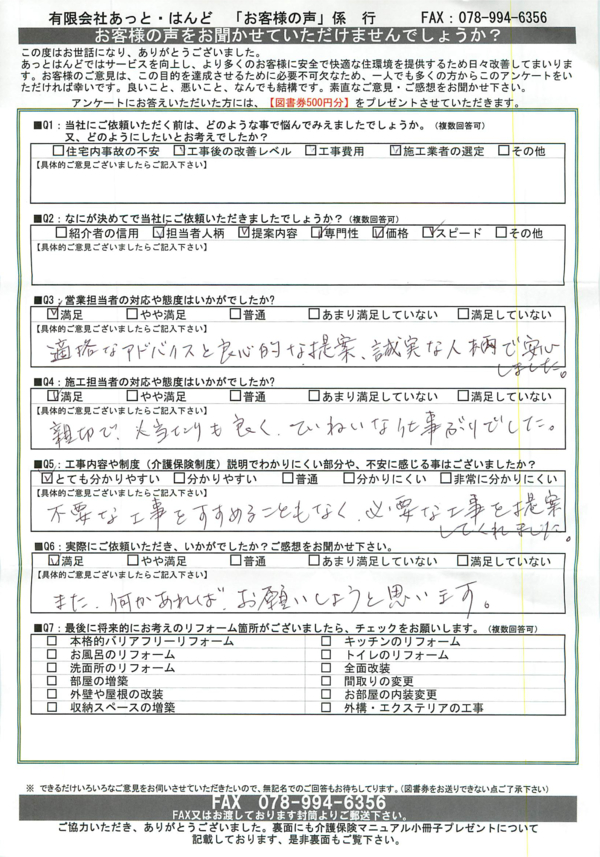 有限会社あっと・はんど 「お客様の声」係 行 FAX：078-994-6356
お客様の声をお聞かせていただけませんでしょうか？
この度はお世話になり、ありがとうございました。
あっとはんどではサービスを向上し、より多くのお客様に安全で快適な住環境を提供するため日々改善してまいります。お客様のご意見は、この目的を達成させるために必要不可欠なため、一人でも多くの方からこのアンケートをいただければ幸いです。良いこと、悪いこと、なんでも結構です。素直なご意見・ご感想をお聞かせ下さい。
アンケートにお答えいただいた方には、【図書券500円分】をプレゼントさせていただきます。
■Q1：当社にご依頼いただく前は、どのような事で悩んでみえましたでしょうか。（複数回答可）
又、どのようにしたいとお考えでしたか？
□住宅内事故の不安 ☑工事後の改善レベル ☑工事費用 ☑施工業者の選定 □その他
【具体的ご意見ございましたらご記入下さい】
■Q2：なにが決めてで当社にご依頼いただきましたでしょうか？（複数回答可）
□紹介者の信用 ☑担当者人柄 ☑提案内容 ☑専門性 ☑価格 ☑スピード □その他
【具体的ご意見ございましたらご記入下さい】
■Q3：営業担当者の対応や態度はいかがでしたか?
☑満足 □やや満足 □普通 □あまり満足していない □満足していない
【具体的ご意見ございましたらご記入下さい】
適格なアドバイスと良心的な提案、誠実な人柄で安心
しました。
■Q4：施工担当者の対応や態度はいかがでしたか?
☑満足 □やや満足 □普通 □あまり満足していない □満足していない
【具体的ご意見ございましたらご記入下さい】
親切で、人当たりも良く、ていねいな仕事ぶりでした。
■Q5：工事内容や制度（介護保険制度）説明でわかりにくい部分や、不安に感じる事はございましたか？
☑とても分かりやすい □分かりやすい □普通 □分かりにくい □非常に分かりにくい
【具体的ご意見ございましたらご記入下さい】
不要な工事をすすめることもなく、必要な工事を提案
してくれました。
■Q6：実際にご依頼いただき、いかがでしたか？ご感想をお聞かせ下さい。
☑満足 □やや満足 □普通 □あまり満足していない □満足していない
【具体的ご意見ございましたらご記入下さい】
また、何かあれば、お願いしようと思います。
■Q7：最後に将来的にお考えのリフォーム箇所がございましたら、チェックをお願いします。（複数回答可）
□ 本格的バリアフリーリフォーム □ キッチンのリフォーム
□ お風呂のリフォーム □ トイレのリフォーム
□ 洗面所のリフォーム □ 全面改装
□ 部屋の増築 □ 間取りの変更
□ 外壁や屋根の改装 □ お部屋の内装変更
□ 収納スペースの増築 □ 外構・エクステリアの工事
※ できるだけいろいろなご意見をお伺いさせていただきたいので、無記名でのご回答もお待ちしてります。（図書券をお送りできない点ご了承下さい）
FAX 078-994-6356
FAX又はお渡ししております封筒よりご郵送下さい。
ご協力いただき、ありがとうございました。裏面にも介護保険マニュアル小冊子プレゼントについて
記載しております、是非裏面もご覧下さい。